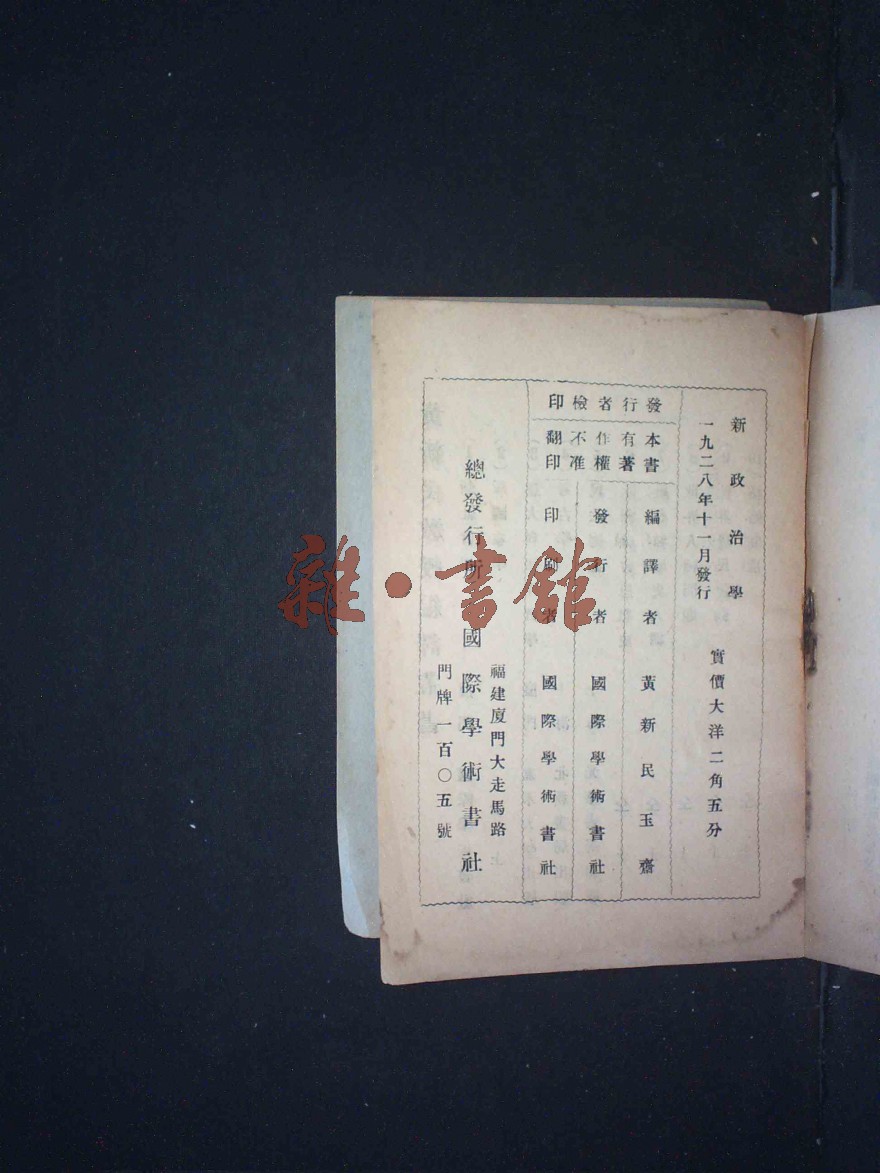 新政治學
一九二八年十一月發行
實價大洋二角五分
發行者檢印
本書有著作權不准翻印
編譯者 黃新民玉齋
發行者 國際學術書社
印刷者 國際學術書社
福建廈門大走馬路
總發行所 國際學術書社
門牌一百〇五號
雜·書館